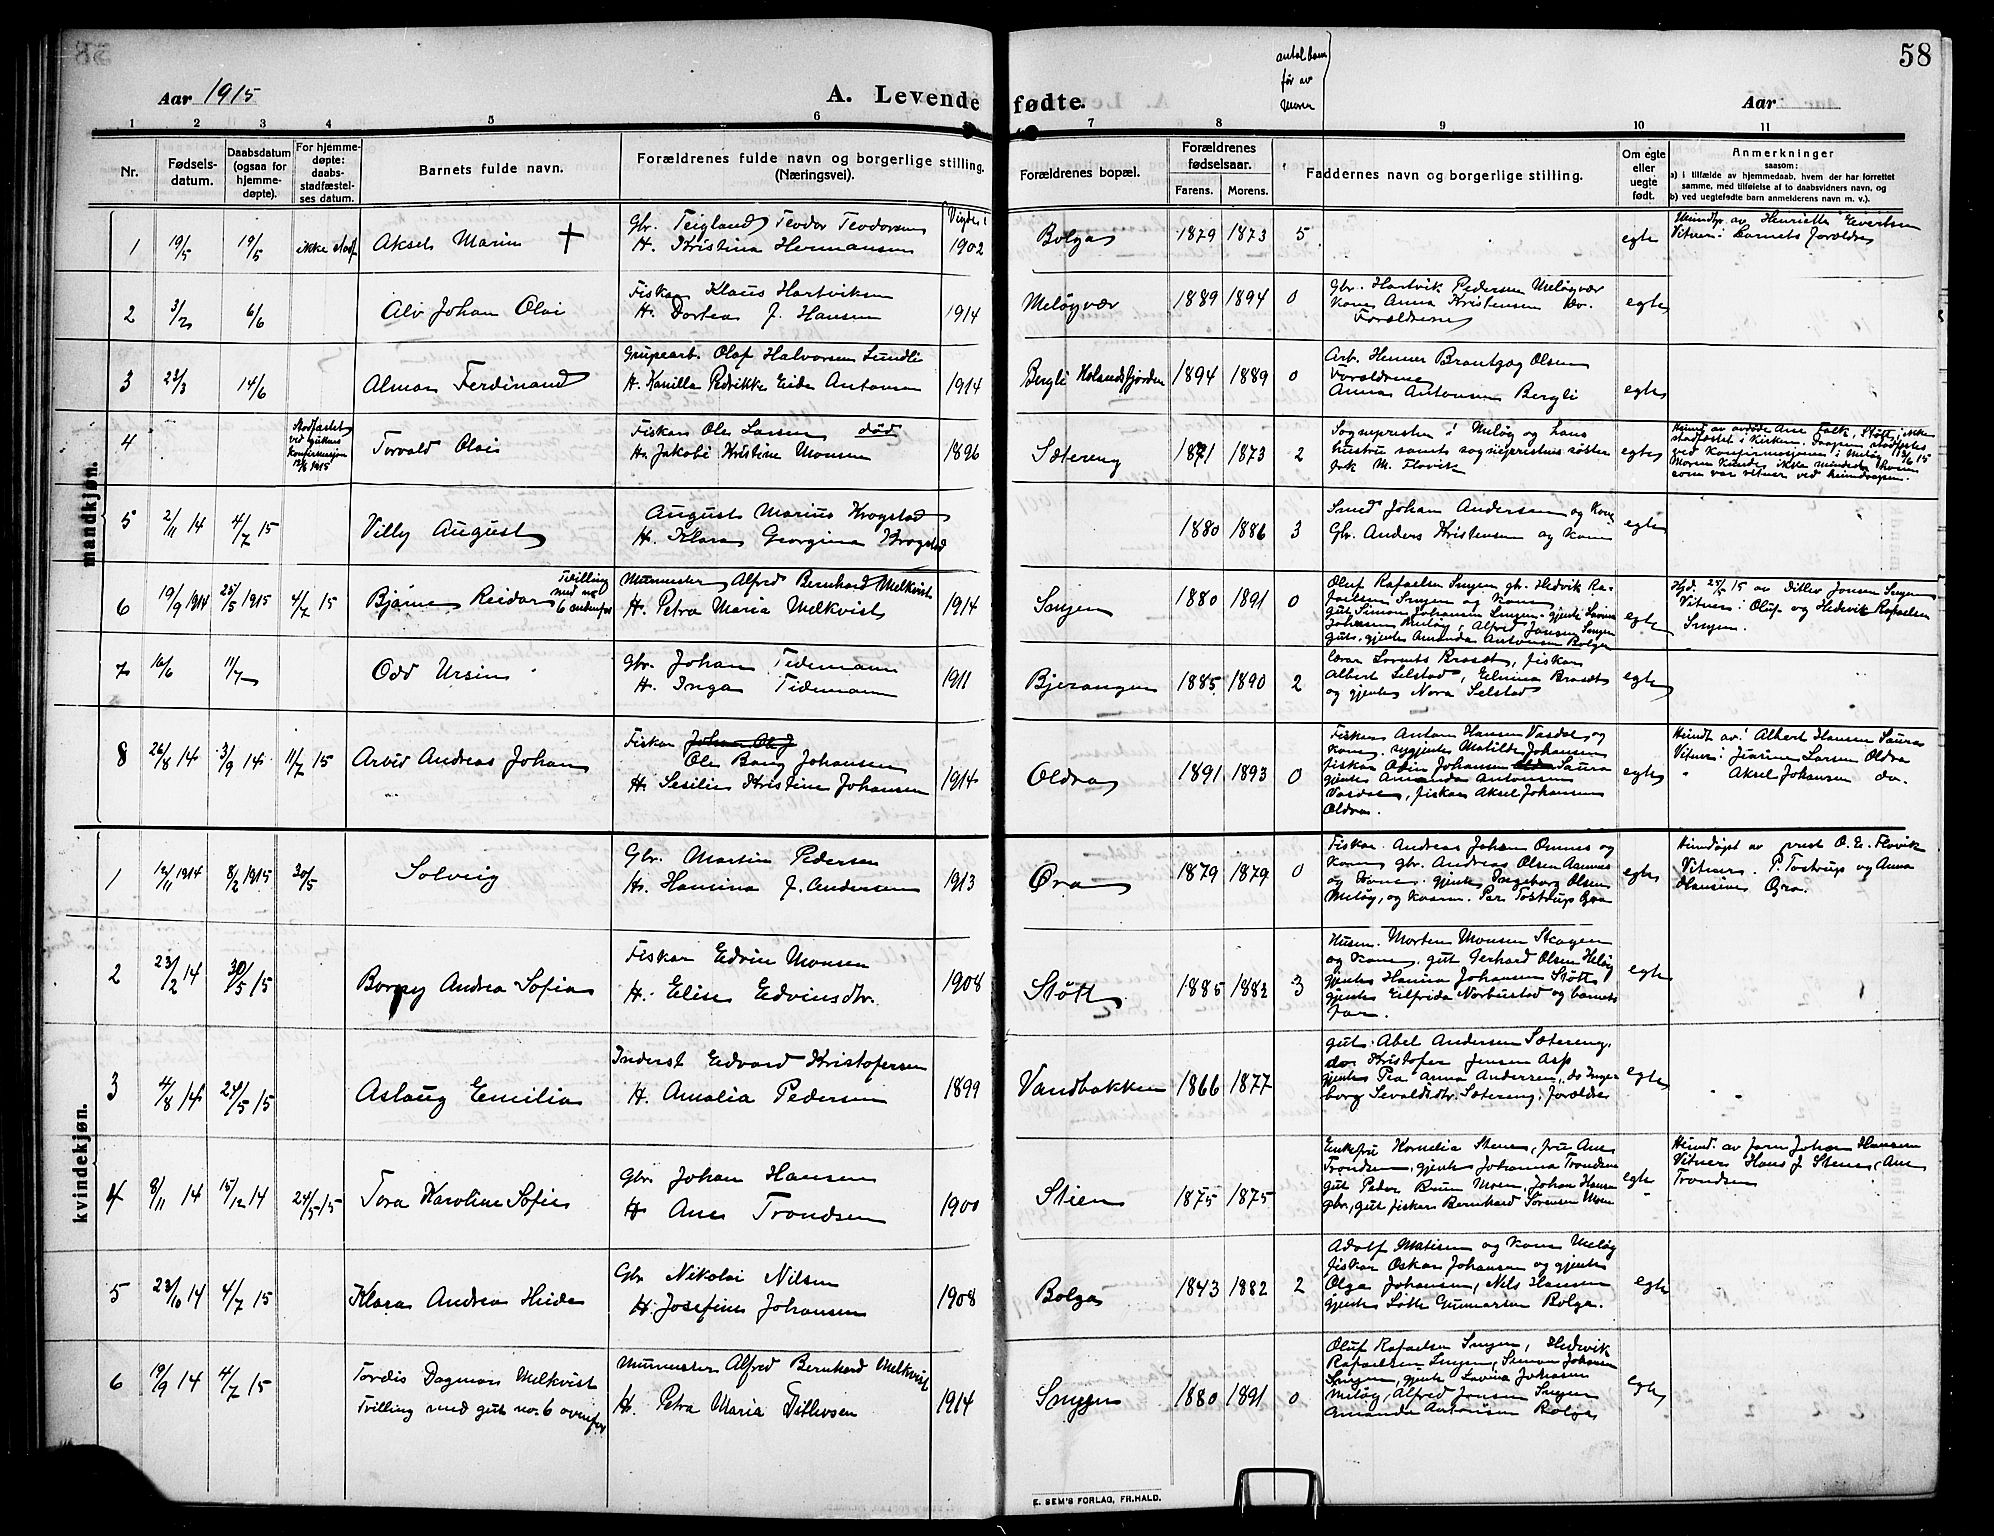 58
Aar 1915
A. Levende fødte.
antal barn
før av
Moren
Aar
1 2 3 4 5 6 7 8 9 10 11
Nr.
Fødsels-
datum.
Daabsdatum
(ogsaa for
hjemme-
døpte).
For hjemme-
døpte:
daabs-
stadfæstel-
ses datum.
Barnets fulde navn.
Forældrenes fulde navn og borgerlige stilling.
(Næringsvei).
Forældrenes bopæl.
Forældrenes
fødselsaar.
Farens. Morens.
Faddernes navn og borgerlige stilling.
Om egte
eller
uegte
født.
Anmerkninger
saasom:
a) i tilfælde av hjemmedaab, hvem der har forrettet
samme, med tilføielse af to daabsvidners navn, og
b) ved uegtefødte barn anmelderens navn m. v.).
mandkjøn.
Vigde:
1 19/5 19/5 ikke stadf. Aksel Marin +
Gbr. Teigland Teodor Teodorsen
H. Kristina Hermansen 1902
Bolga 1879 1873 5 egte
av Henriette Evertsen
Vitner: barnets forældre
2 3/2 6/6 Alv Johan Olai
Fisker Klaus Hartviksen
H. Dortea J. Hansen 1914
Meløyvær 1889 1894 0
Gbr. Hartvik Pedersen Meløyvær
Kone Anna Kristensen do.
Forældrene
egte
3 23/3 14/6 Almar Ferdinand
Grupearb. Olaf Halvorsen Lundli
H. Kamilla Pedrikke Eida Antonsen 1914
Bergli Holandsfjorden 1894 1889 0
Arb. Henner Brantzog Olsen
Forældrene
Anna Antonsen Bergli
egte
4 Stadfæstet
ved guttens
konfirmasjon
13/6 1915
Torvald Olai
Fisker Ole Larsen død
H. Jakobi Kristine Monsen 1896
Sætereng 1871 1873 2
Sognepresten i Meløy og hans
hustru samt sogneprestens søster
frk M. Flovik
egte
Hjemd. av avdøde Ane Falk, Støtt; ikke
stadfæstet i kirken. Daapen stadfæstes
ved konfirmasjonen i Meløy 13/6 15
Moren kunde ikke mindes hvem
som var vitner ved hjemdaapen.
5 2/11 14 4/7 15 Villy August
August Marius Krogstad
H. Klara Georgina Krogstad
1880 1886 3
Smed Johan Andersen og Kone
Gbr. Anders Kristensen og Kone
egte
6 19/9 1914 25/5 1915 4/7 15 Bjarne Reidar Tvilling
med no
6 nedenfor
Murmester Alfred Bernhard Melkvist
H. Petra Maria Melkvist 1914
Smyen 1880 1891 0
Oluf Rafaelsen Smyen gbr. Hedvik Ra-
faelsen Smyen og Kone
gut Simon Johansen Smyen, gjente Lovina
Johansen Meløy, Alfred Jonsen Smyen
gut, gjente Amanda Antonsen Bolga
egte
Hjd. 25/5 15 av Ditlev Jonsen Smyen
Vitner: Oluf og Hedvik Rafaelsen
Smyen.
7 16/6 11/7 Odd Ursin
Gbr. Johan Tidemann
H. Inga Tidemann 1911
Bjerangen 1885 1890 2
Lærer Lornts Brodt, fisker
Albert Selstad, Elmina Brodt
og gjente Nora Selstad
egte
8 26/8 14 3/9 14 11/7 15 Arvid Andreas Johan
Fisker
Ole Bang Johansen
H. Sesilie Kristine Johansen 1914
Oldra 1891 1893 0
Fisker Anton Hansen Vasdal og
Kone, Matilde Johansen
fisker Odin Johansen Saura
gjente Amanda Antonsen
Vasdal, fisker Aksel Johansen
Oldra.
egte
Hjemdt av: Albert Hansen Saura
Vitner: Jenine Larsen Oldra
" Aksel Johansen do.
kvindekjøn.
1 12/11 1914 8/2 1915 30/5 Solveig
Gbr. Martin Pedersen
H. Hanina J. Andersen 1913
Øra 1879 1879 0
Fisker Andreas Johan Ornes og
Kone gbr. Andreas Olsen Aamnes
og Kone. gjente Ingeborg Olsen
Meløy, og Kvarm. Per Tostrup Øra
egte
Hjemdøpt av prest O. E. Flovik
Vitner. P. Tostrup og Anna
Hansine Øra.
2 23/2 14 30/5 15 Borgy Andrea Sofia
Fisker Edvin Monsen
H. Elise Edvinsdtr. 1908
Støtt 1885 1882 3
Husm. Morten Monsen Skagen
og Kone, gut Gerhard Olsen Meløy
gjente Hanna Johansen Støtt
gjente Elfrida Norbustad og barnets
far.
egte
3 4/8 14 24/5 15 Aslaug Emilia
Inderst Edvard Kristofersen
H. Amalia Pedersen 1899
Vandbakken 1866 1877
gut Abel Andersen Sætereng,
do. Kristofer Jensen Asp
gjente Pea Anna Andersen, do Inge-
borg Sevaldsdtr. Sætereng, forældre
egte
4 8/11 14 15/12 14 24/5 15 Tora Karoline Sofie
Gbr. Johan Hansen
H. Ane Trondsen 1900
Stien 1875 1875
Enkefru Kornelia Stene, fru Ane
Trondsen, gjente Johanna Trondsen
gut Peder Brun Moen, Johan Hansen
gbr., gut fisker Bernhard Sørensen Moen
egte
Hjemd. av farm Johan Hansen
Vitner Hans J. Stene, Ane
Trondsen
5 23/10 14 4/7 15 Klara Andrea Heide
Gbr Nikolai Nilsen
H. Josefine Johansen 1908
Bolga 1843 1882 2
Adolf Matisen og kone Meløy
fisker Oskar Johansen og gjente
Olga Johansen, Nils Hansen
gjente Lotte Gunnarson Bolga.
egte
6 19/9 14 4/7 15 Tordis Dagmar Melkvist
Tvilling med gut no. 6 ovenfor
Murmester Alfred Bernhard Melkvist
H. Petra Maria Ditlevsen 1914
Smyen 1880 1891 0
Oluf Rafaelsen Smyen, Hedvik
Rafaelsen Smyen, Simon Johansen
Smyen, gjente Lovina Johansen
Meløy, Alfred Jonsen Smyen
Amanda Antonsen Bolga
egte
E. SEM'S FORLAG, FR.HALD.